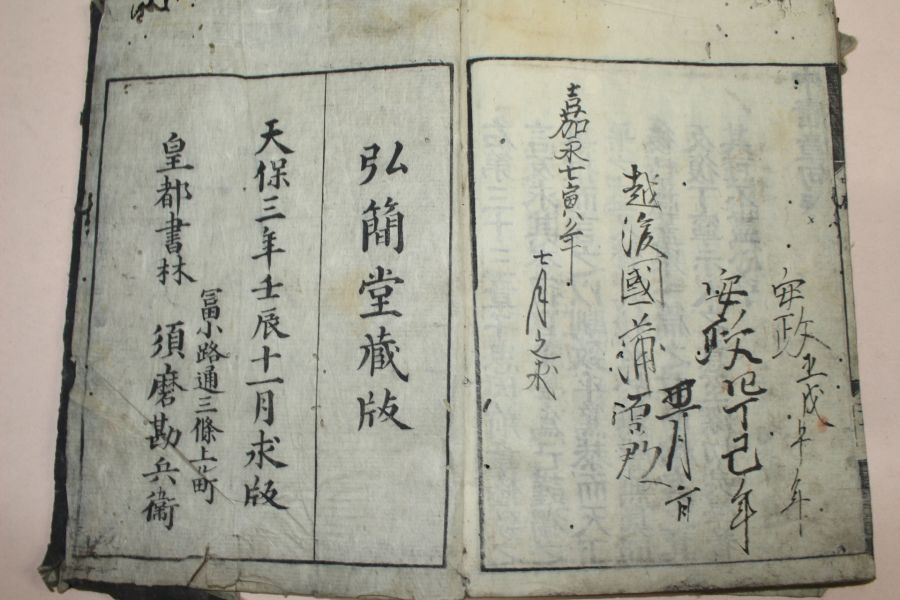 安政五戊午年
安政四丁巳年
四月
越後國蒲原郡
嘉永七寅年
七月之求
弘簡堂藏版
天保三年壬辰十一月求版
冨小路通三條上町
皇都書林 須磨勘兵衞